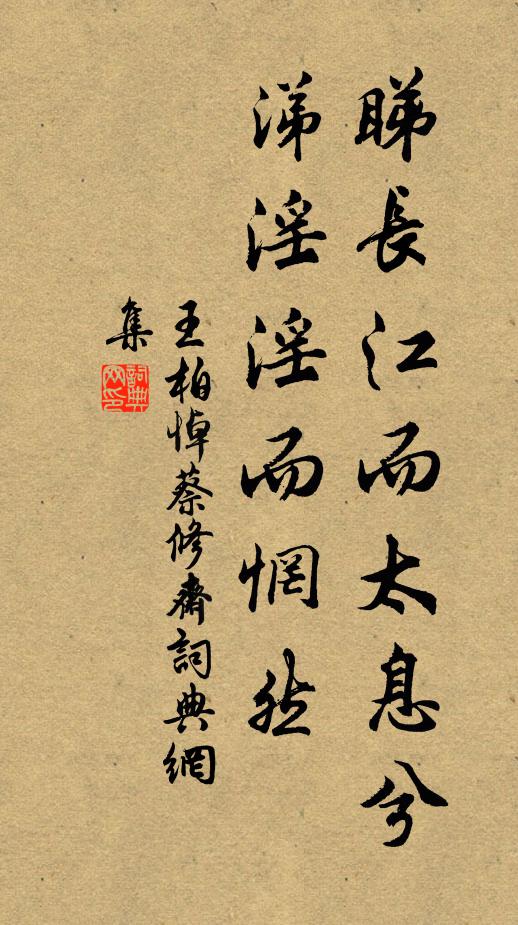 睇長江而太息兮
涕淫淫而惘然
王柏悼蔡修齋詞典網
集
詞典網印